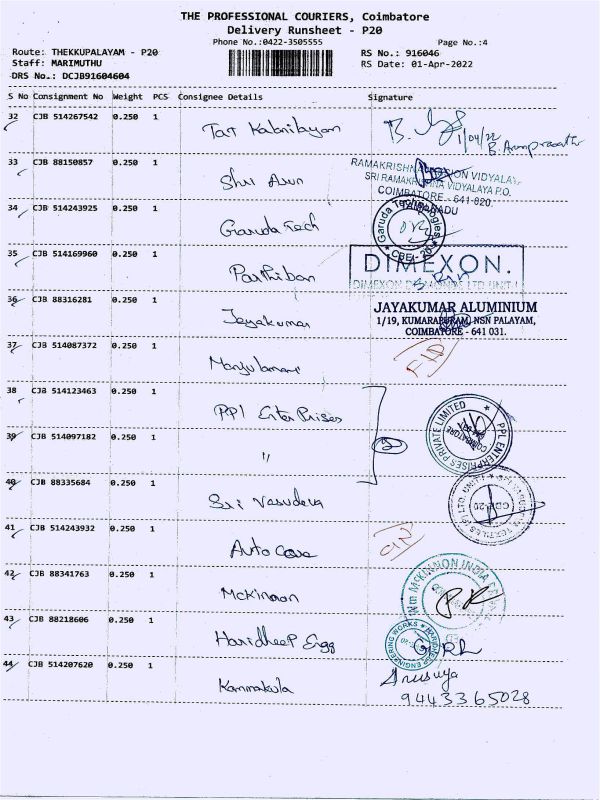 THE PROFESSIONAL COURIERS, Coimbatore
Delivery Runsheet - P20
Phone No.:0422-3505555
Page No.:4
Route: THEKKUPALAYAM - P20
RS No.: 916046
Staff: MARIMUTHU
RS Date: 01-Apr-2022
DRS No.: DCJB91604604
S No Consignment No Weight PCS Consignee Details Signature
32 CJB 514267542 0.250 1
1/04/22
33 CJB 88150857 0.250 1 Shri Arun
RAMAKRISHNA MISSION VIDYALAYA
SRI RAMAKRISHNA VIDYALAYA P.O.
COIMBATORE - 641 020.
TAMILNADU
34 CJB 514243925 0.250 1 Garuda Tech
Garuda Technologies
CBE - 20
35 CJB 514169960 0.250 1 Parthiban
DIMEXON.
DIMEXON DIAMONDS LTD UNIT I
36 CJB 88316281 0.250 1 Jayakumar
JAYAKUMAR ALUMINIUM
1/19, KUMARAPURAM, NSN PALAYAM,
COIMBATORE - 641 031.
37 CJB 514087372 0.250 1
38 CJB 514123463 0.250 1 PPl EnterPrises
2
PPL ENTERPRISES PRIVATE LIMITED
COIMBATORE
39 CJB 514097182 0.250 1 "
40 CJB 88335684 0.250 1 Sri Vasudeva
41 CJB 514243932 0.250 1 Auto Care
42 CJB 88341763 0.250 1 McKinnon
Wm McKINNON INDIA
43 CJB 88218606 0.250 1 Haridheep Engg
HARIDHEEP ENGINEERING WORKS
44 CJB 514207620 0.250 1 Kammakula
Anusuya
9443365028